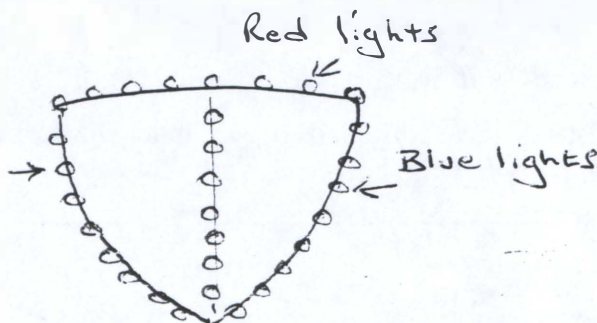 Red lights
Blue lights